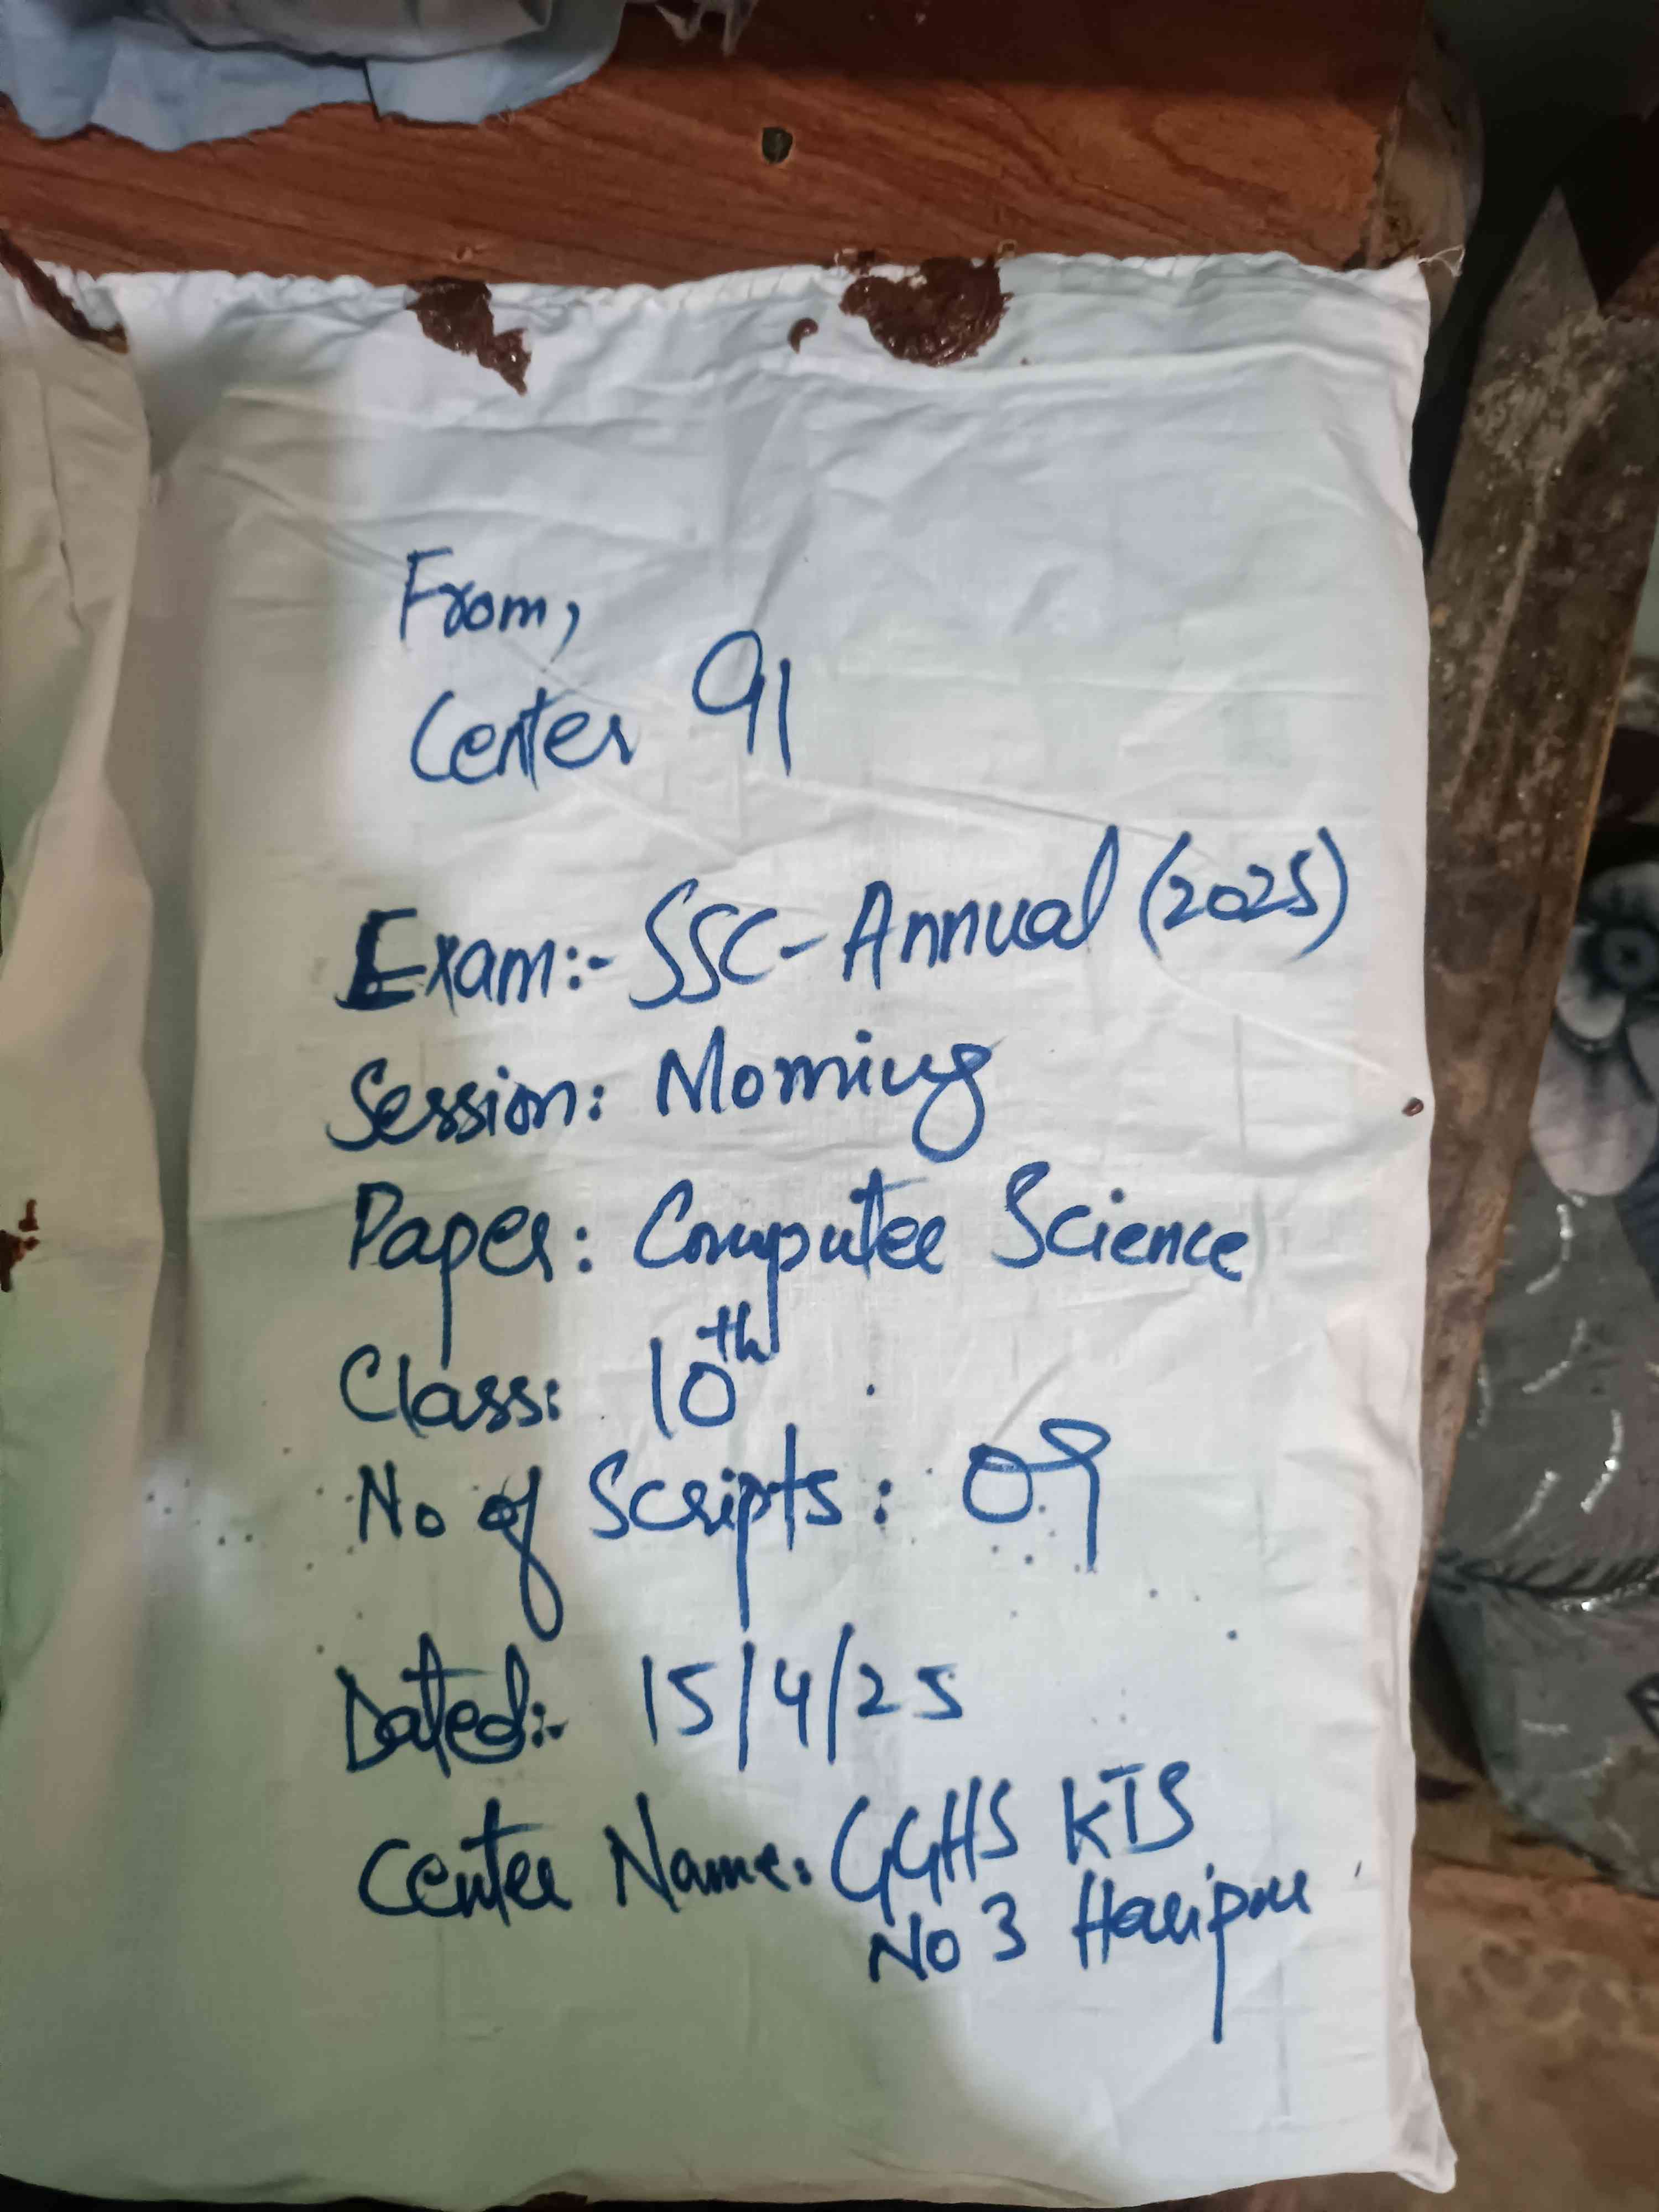 From,
Center 91
Exam:- SSC- Annual (2025)
Session: Morning
Paper: Computer Science
Class: 10th
No of Scripts: 09
Dated:- 15/4/25
Center Name: GGHS KTS
No 3 Haripur